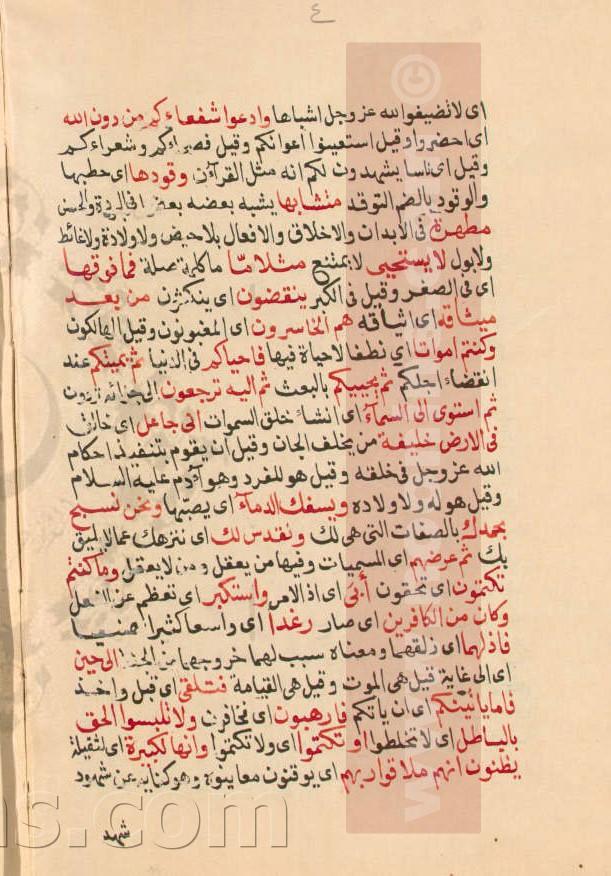 ٤
اى لا تضيفوا لله عز وجل اشباها وادعوا شفعاءكم من دون الله
اى احضروا وقيل استعينوا أعوانكم وقيل فصحاءكم وشعراءكم
وقيل اى ناسا يشهدون لكم انه مثل القرآن وقودها اى حطبها
والوقود بالضم التوقد متشابها يشبه بعضه بعضا فى الجودة والحسن
مطهرة فى الأبدان والاخلاق والافعال بلا حيض ولا ولادة ولا غائط
ولا بول لا يستحيى لا يمتنع مثلا مّا ما كلمة صلة فما فوقها
اى فى الصغر وقيل فى الكبر ينقضون اى ينكثون من بعد
ميثاقه اى ايثاقه هم الخاسرون اى المغبونون وقيل الهالكون
وكنتم امواتا اى نطفا لا حياة فيها فاحياكم فى الدنيا ثم يميتكم عند
انقضاء اجلكم ثم يحييكم بالبعث ثم اليه ترجعون الى جزائه تردون
ثم استوى الى السماء اى انشاء خلق السموات انى جاعل اى خالق
فى الارض خليفة من يخلف الجان وقيل ان يقوم بتنفيذ احكام
الله عز وجل فى خلقه وقيل هو للمفرد وهو آدم عليه السلام
وقيل هو له ولاولاده ويسفك الدماء اى يصبّها ونحن نسبح
بحمدك بالصفات التى هى لك ونقدس لك اى ننزهك عما لا يليق
بك ثم عرضهم اى المسميات وفيها من يعقل ومن لا يعقل وما كنتم
تكتمون اى تخفون أبى اى اذ الامر واستكبر اى تعظم عن الفعل
وكان من الكافرين اى صار رغدا اى واسعا كثيرا
فازلهما اى زلقهما ومعناه سبب لهما خروجهما من الجنة الى حين
اى الى غاية قيل هى الموت وقيل هى القيامة فتلقى اى قبل واخذ
فاما يأتينكم اى ان ياتكم فارهبون اى فخافون ولا تلبسوا الحق
بالباطل اى لا تخلطوا او تكتموا اى ولا تكتموا وانها لكبيرة اى لثقيلة
يظنون انهم ملاقوا ربهم اى يوقنون وهو كناية عن شهود
شهد